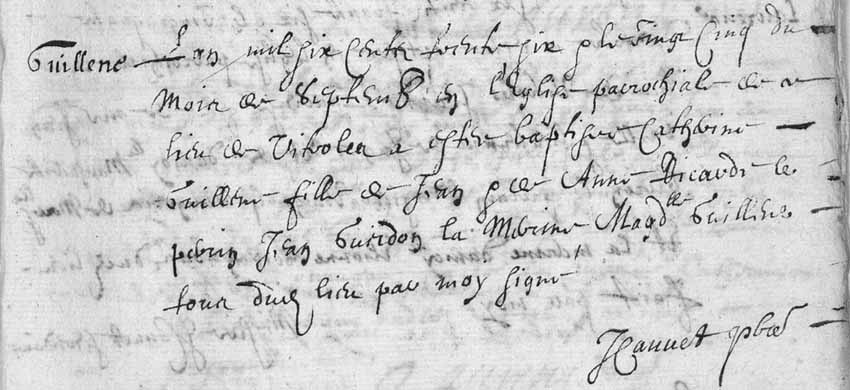 Guillene
L'an mil six cents trente six & le vingt cinq du
mois de Septemb en l'Eglise parrochiale de ce
lieu de Vitrolles a estee baptisee Catherine
Guillene fille de Jean & de Anne Ricarde le
perin Jean Guirdon la Merine Magd^lle Guillene
tous dud lieu par moy signe
Jauvet pbre